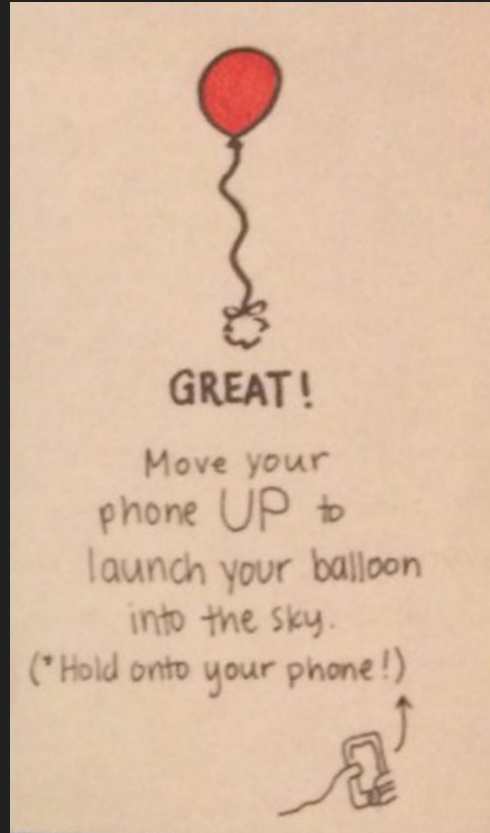 GREAT!
Move your
phone UP to
launch your balloon
into the sky.
(*Hold onto your phone!)